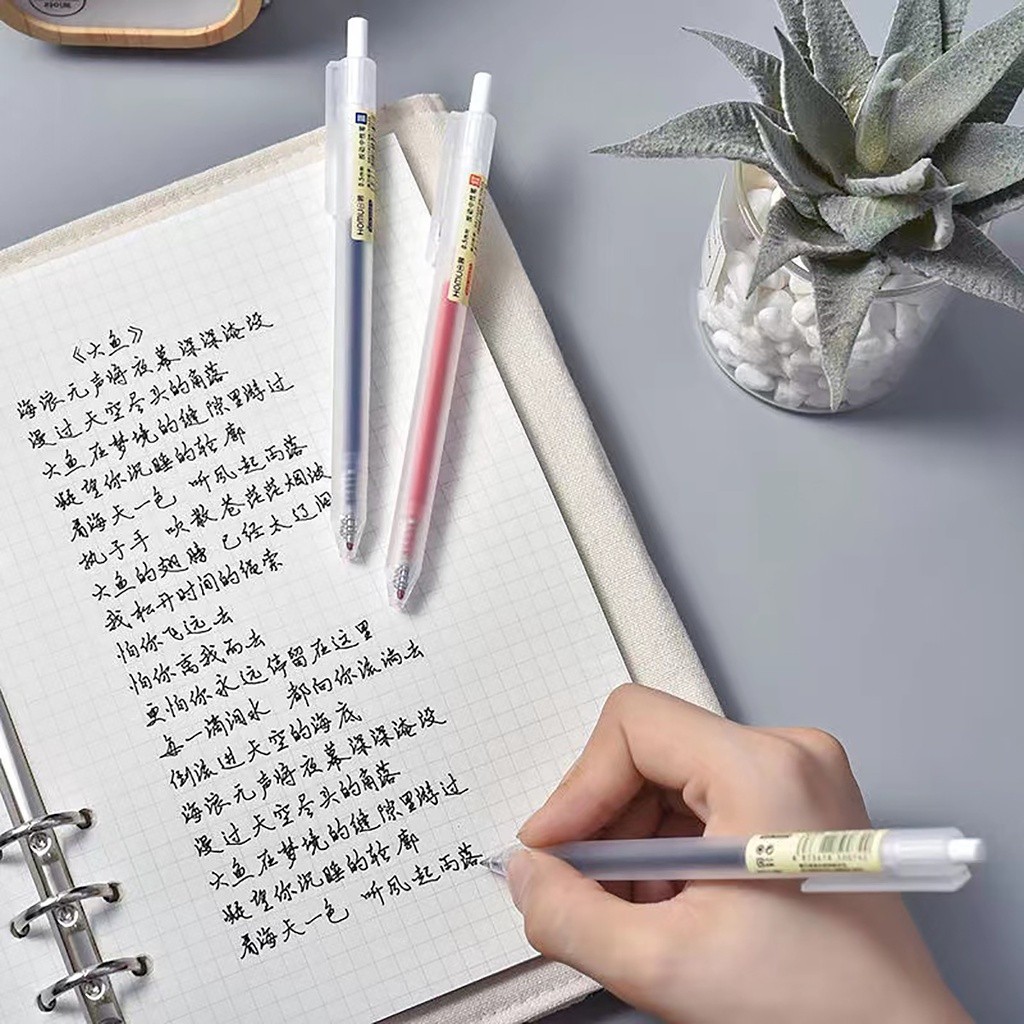 《大鱼》
海浪无声将夜幕深深淹没
漫过天空尽头的角落
大鱼在梦境的缝隙里游过
凝望你沉睡的轮廓
看海天一色 听风起雨落
执子手 吹散苍茫茫烟波
大鱼的翅膀 已经太辽阔
我松开时间的绳索
怕你飞远去
怕你离我而去
更怕你永远停留在这里
每一滴泪水 都向你流淌去
倒流进天空的海底
海浪无声将夜幕深深淹没
漫过天空尽头的角落
大鱼在梦境的缝隙里游过
凝望你沉睡的轮廓
看海天一色 听风起雨落
HOMU 0.5mm 按动中性笔
HOMU 0.5mm 按动中性笔